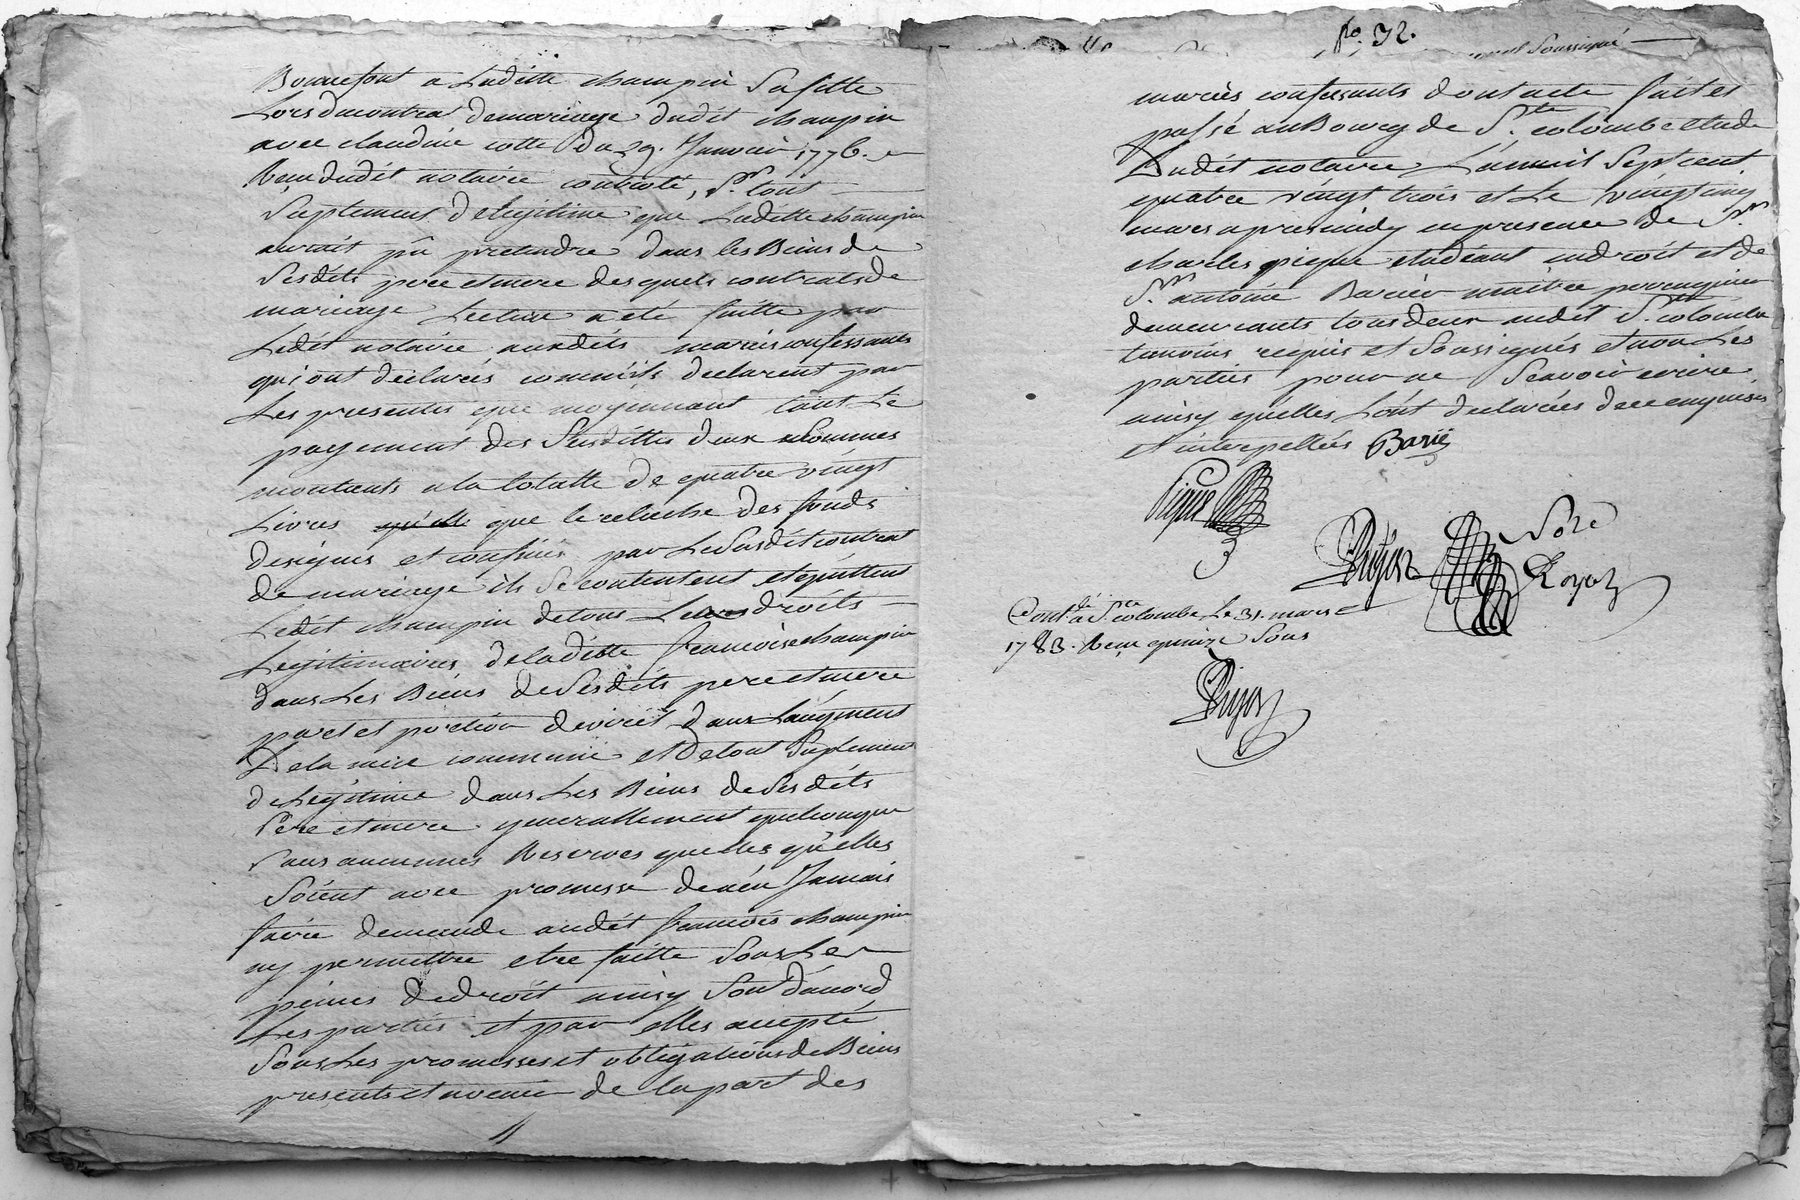 Bonnefont a Laditte champin Sa fille
Lors du contrat de mariage dudit champin
avec claudine cotte du 29. Janvier 1776.
Reçu dudit notaire controlé, Sr. tout
Suplement de legitime que Laditte champin
auroit pû pretendre dans les Biens de
Sesdits pere et mere desquels contrats de
mariage Lecture a eté faitte par
Ledit notaire auxdits mariés confessants
qui ont declarés comm'ils declarent par
Les presentes que moyennant tout Le
payement des Susdittes deux Sommes
montants a la totalle de quatre vingt
Livres que le relache des fonds
designés et confinés par Le Susdit contrat
de mariage ils Se contentent et quittent
Ledit champin de tous Leurs droits
Legitimaires de laditte francoise champin
dans Les Biens de Sesdits pere et mere
part et portion de virit dans L'augment
De la mere commune et de tout Suplement
de Legitime dans Les Biens de Sesdits
Pere et mere generallement quelconque
Sans aucunnes Reserves quelles qu'elles
Soient avec promesse de n'en Jamais
faire demande audit francois champin
ny permettre etre faitte Sous Les
peines de droit ainsy Sont d'acord
Les parties et par elles accepté
Sous Les promesses et obligations de Biens
presents et avenir de la part des
fo. 32.
Soussigné
mariés confessants dont acte fait et
passé au Bourg de Ste. colombe etude
Dudit notaire L'an mil Sept cent
quatre vingt trois et Le vingt cinq
mars apres midy en presence de Sr.
charles pique etudiant en droit et de
Sr. antoine Barier maitre perruquier
demeurants tous deux audit Ste. colombe
temoins requis et Soussignés et non Les
parties pour ne Scavoir ecrire
ainsy qu'elles L'ont declarées de ce enquises
et interpellées Barié
Pique
Noté
Contlé. a Ste. colombe Le 31. mars
1783. Reçu quinze Sous